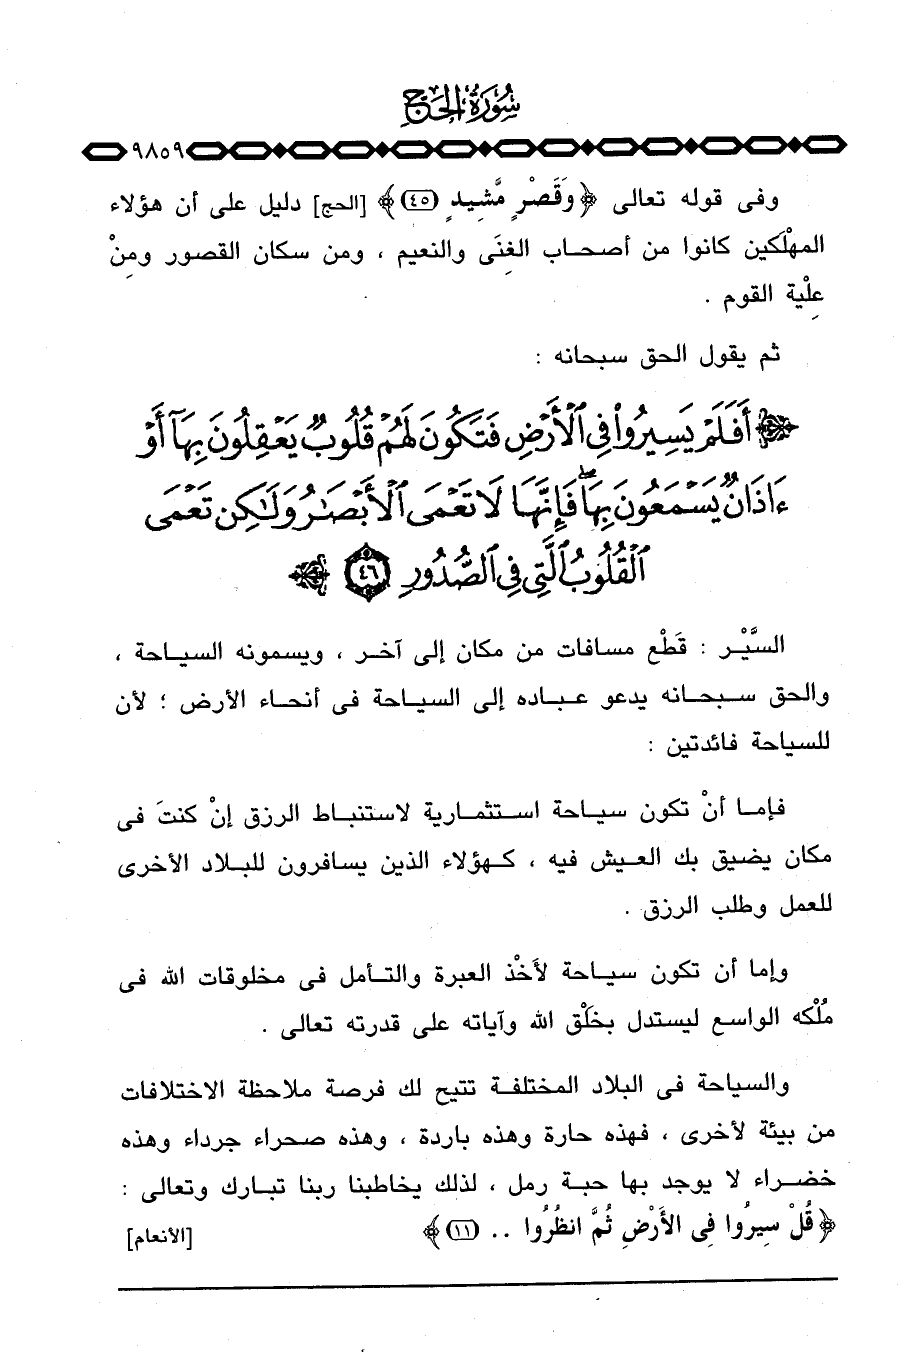 سُورَةُ الحَجِّ
٩٨٥٩
وفى قوله تعالى ﴿وَقَصْرٍ مَّشِيدٍ (٤٥)﴾ [الحج] دليل على أن هؤلاء
المهْلَكين كانوا من أصحاب الغِنَى والنعيم ، ومن سكان القصور ومِنْ
عِلْية القوم .
ثم يقول الحق سبحانه :
﴿أَفَلَمْ يَسِيرُواْ فِى ٱلْأَرْضِ فَتَكُونَ لَهُمْ قُلُوبٌ يَعْقِلُونَ بِهَآ أَوْ
ءَاذَانٌ يَسْمَعُونَ بِهَا ۖ فَإِنَّهَا لَا تَعْمَى ٱلْأَبْصَٰرُ وَلَٰكِن تَعْمَى
ٱلْقُلُوبُ ٱلَّتِى فِى ٱلصُّدُورِ ٤٦﴾
السَّيْر : قَطْع مسافات من مكان إلى آخر ، ويسمونه السياحة ،
والحق سبحانه يدعو عباده إلى السياحة فى أنحاء الأرض ؛ لأن
للسياحة فائدتين :
فإما أنْ تكون سياحة استثمارية لاستنباط الرزق إنْ كنتَ فى
مكان يضيق بك العيش فيه ، كهؤلاء الذين يسافرون للبلاد الأخرى
للعمل وطلب الرزق .
وإما أن تكون سياحة لأَخْذ العبرة والتأمل فى مخلوقات الله فى
مُلْكه الواسع ليستدل بخَلْق الله وآياته على قدرته تعالى .
والسياحة فى البلاد المختلفة تتيح لك فرصة ملاحظة الاختلافات
من بيئة لأخرى ، فهذه حارة وهذه باردة ، وهذه صحراء جرداء وهذه
خضراء لا يوجد بها حبة رمل ، لذلك يخاطبنا ربنا تبارك وتعالى :
﴿قُلْ سِيرُوا فِى الأَرْضِ ثُمَّ انظُرُوا .. (١١)﴾ [الأنعام]